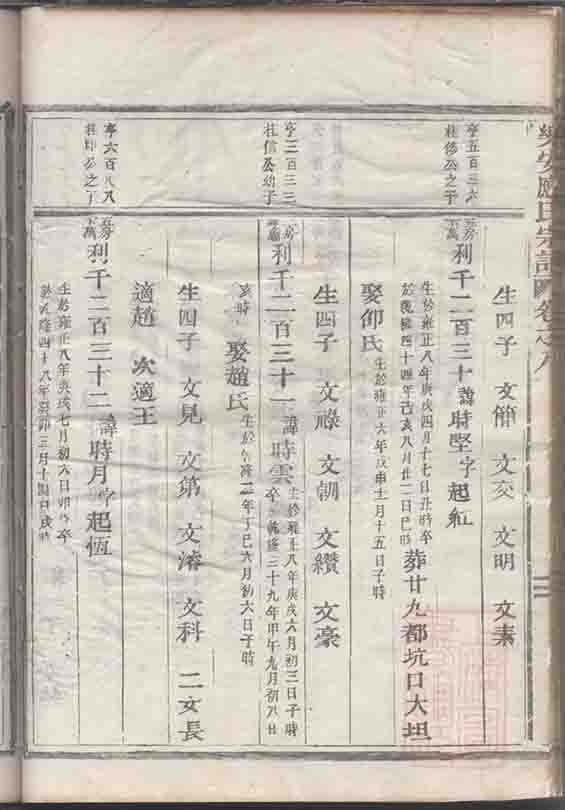 安 氏宗譜 卷之八
生四子 文簡 文交 文明 文素
亨五百三六
桂 公之子
五房
下萬
利千二百三十 諱時堅字起紅
生於雍正八年庚戌四月十七日丑時卒
於乾隆四十四年己亥八月廿二日巳時 葬廿九都坑口大坦
娶仰氏 生於雍正六年戊申十一月十五日子時
生四子 文祿 文朝 文纘 文豪
亨三百三三
桂信公幼子
房
利千二百三十一 諱時雲 生於雍正八年庚戌六月初三日子時
卒於乾隆三十九年甲午九月初八日
亥時 娶趙氏 生於乾隆二年丁巳六月初六日子時
生四子 文見 文第 文濬 文科 二女長
適趙 次適王
亨六百八八
桂 公之子
五房
下萬
利千二百三十二 諱時月字起恆
生於雍正八年庚戌七月初六日卯時卒
於乾隆四十八年癸卯三月十 日戌時